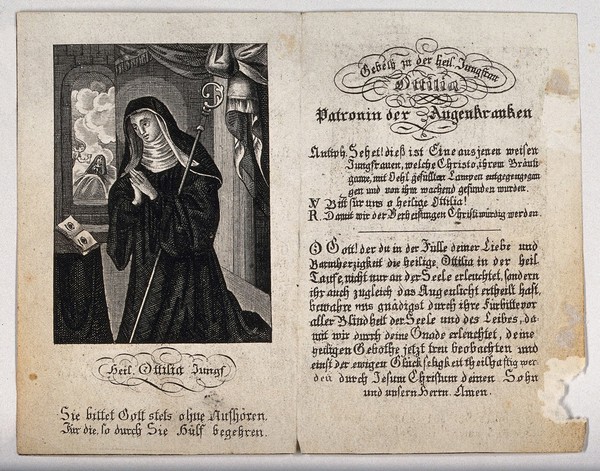 Heil. Ottilia Jungf.
Sie bittet Gott stets ohne Aufhören.
Für die, so durch Sie Hülf begehren.
Gebeth zu der heil. Jungfrau
Ottilia
Patronin der Augenkranken
Antiph. Sehet! dieß ist Eine aus jenen weisen
Jungfrauen, welche Christo, ihrem Bräuti
game, mit Oehl gefüllten Lampen entgegengegan
gen und von ihm wachend gefunden wurde.
V Bitt für uns o heilige Ottilia!
R. Damit wir der Verheisungen Christi würdig werden.
O Gott! der du in der Fülle deiner Liebe und
Barmherzigkeit die heilige Ottilia in der heil.
Taufe, nicht nur an der Seele erleuchtet, sondern
ihr auch zugleich das Augenlicht ertheilt hast,
bewahre uns gnädigst durch ihre Fürbitte vor
aller Blindheit der Seele und des Leibes, da
mit wir durch deine Gnade erleuchtet, deine
heiligen Gebothe jetzt treu beobachten und
einst der ewigen Glückseligkeit theilhaftig wer
den durch Jesum Christum deinen Sohn
und unsern Herrn. Amen.